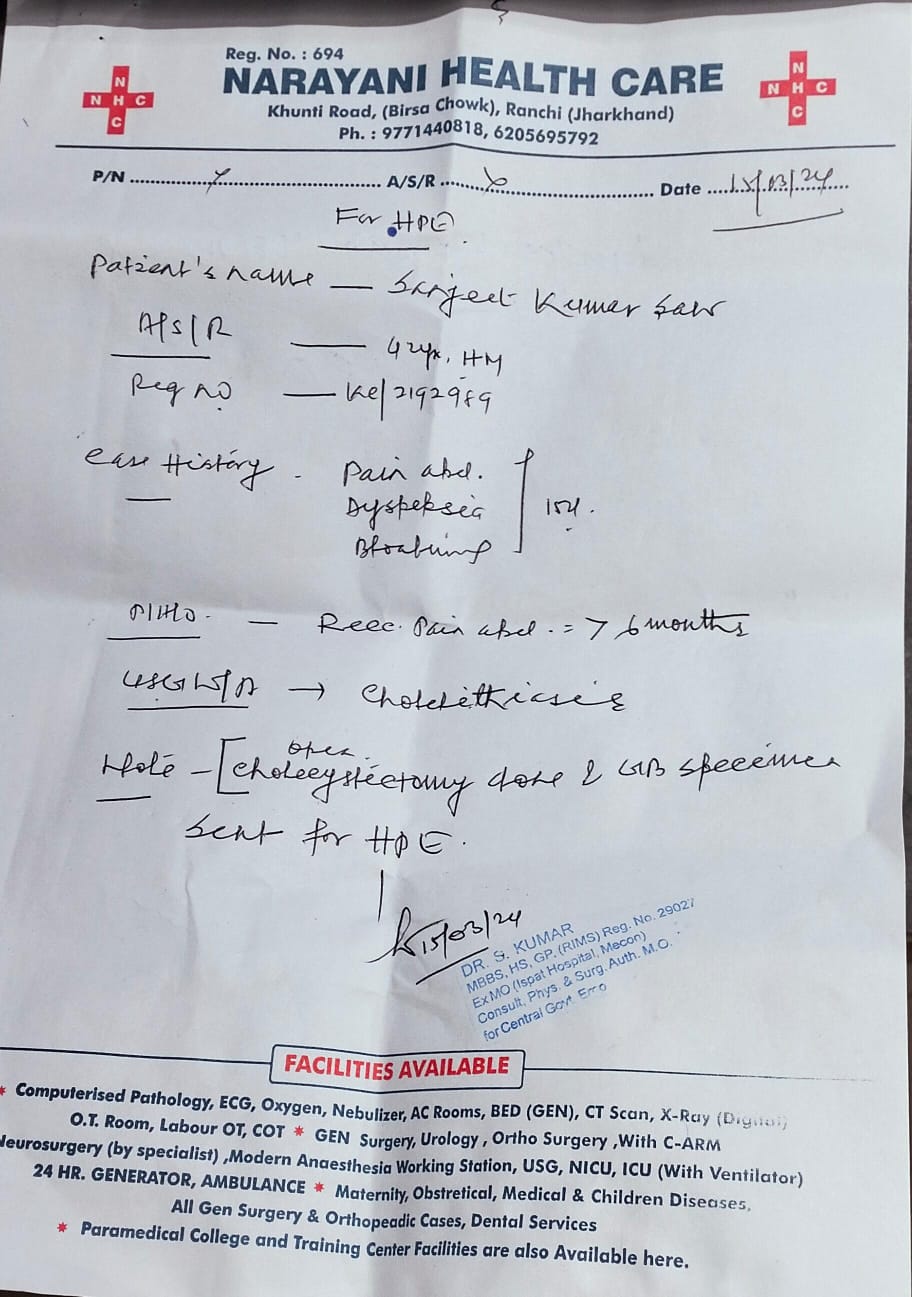 Reg. No. : 694
NARAYANI HEALTH CARE
Khunti Road, (Birsa Chowk), Ranchi (Jharkhand)
Ph. : 9771440818, 6205695792
N
N H C
C
N
N H C
C
P/N ............ A/S/R ............ Date ....15/03/24....
For HPE
Patient's name — Sanjeet Kumar Saw
A/S/R — 42yr, HM
Reg no — Ke/2192989
Case History - Pain abd.
Dyspeksia
Bloating
— Recc. Pain abd. = > 6 months
USG W/A → Cholelithiasis
Note - [ open
Cholecystectomy done & GB specimen
sent for HPE.
15/03/24
DR. S. KUMAR
MBBS, HS, GP. (RIMS) Reg. No. 29027
Ex MO (Ispat Hospital, Mecon)
Consult, Phys. & Surg. Auth. M.O.
for Central Govt.
FACILITIES AVAILABLE
* Computerised Pathology, ECG, Oxygen, Nebulizer, AC Rooms, BED (GEN), CT Scan, X-Ray (Digital)
O.T. Room, Labour OT, COT * GEN Surgery, Urology , Ortho Surgery ,With C-ARM
Neurosurgery (by specialist) ,Modern Anaesthesia Working Station, USG, NICU, ICU (With Ventilator)
24 HR. GENERATOR, AMBULANCE * Maternity, Obstretical, Medical & Children Diseases,
All Gen Surgery & Orthopeadic Cases, Dental Services
* Paramedical College and Training Center Facilities are also Available here.